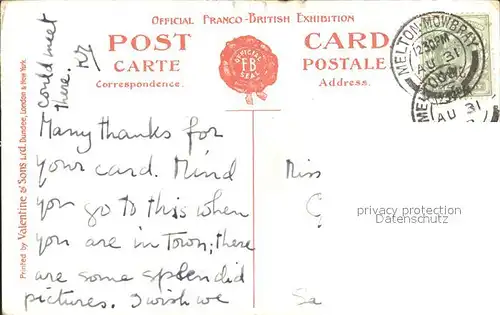 OFFICIAL FRANCO-BRITISH EXHIBITION
POST CARD
CARTE POSTALE
Correspondence. Address.
OFFICIAL
F B
SEAL
MELTON MOWBRAY
12.30 PM
AU 31
AU 31
Printed by Valentine & Sons Ltd. Dundee, London & New York.
Many thanks for
your card. Mind
you go to this when
you are in Town; there
are some splendid
pictures. I wish we
could meet
there.
Miss
Sa
privacy protection
Datenschutz